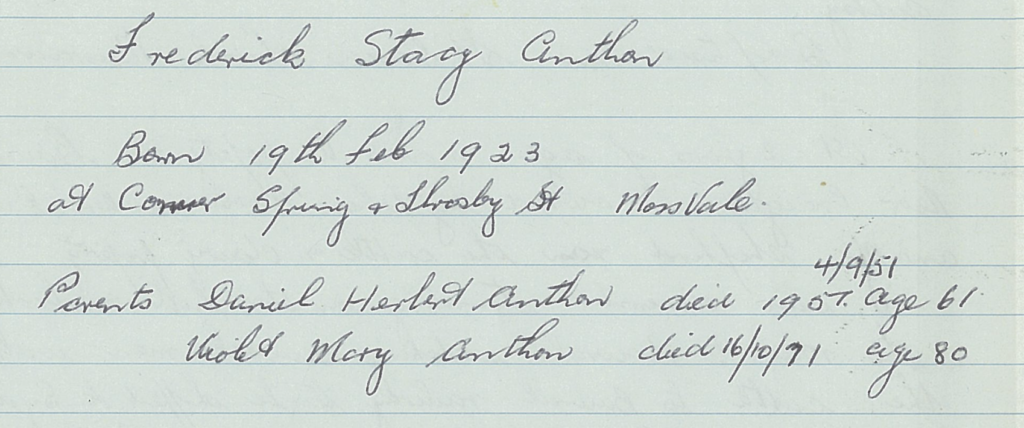 Frederick Stacy Anthon
Born 19th Feb 1923
at Corner Spring + Throsby St Moss Vale.
4/9/51
Parents Daniel Herbert Anthon died 1951. age 61
Violet Mary Anthon died 16/10/71 age 80